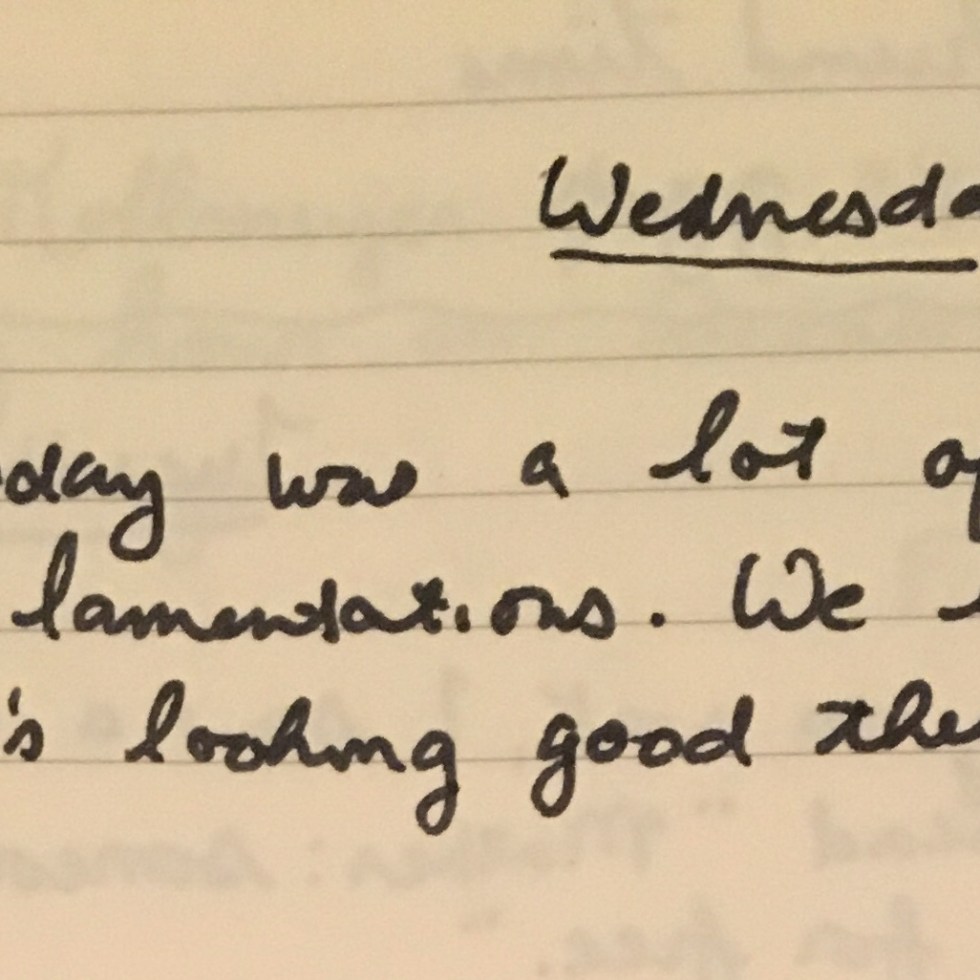 Wednesda
day was a lot of
lamentations. We
's looking good the